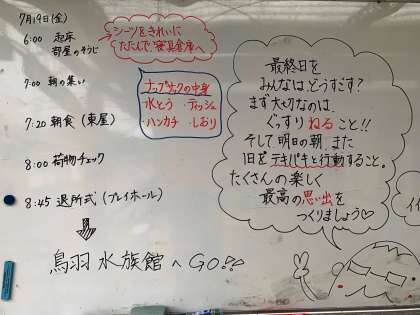 7月19日(金)
6:00 起床
部屋のそうじ
シーツをきれいに
たたんで寝具倉庫へ
7:00 朝の集い
ナップサックの中身
水とう ・ティッシュ
・ハンカチ ・しおり
7:20 朝食(東屋)
8:00 荷物チェック
8:45 退所式(プレイホール)
鳥羽水族館へGO!!
最終日を
みんなはどうすごす?
まず大切なのは、
ぐっすりねること!!
そして明日の朝、また
1日をテキパキと行動すること。
たくさんの楽しく
最高の思い出を
つくりましょう♡